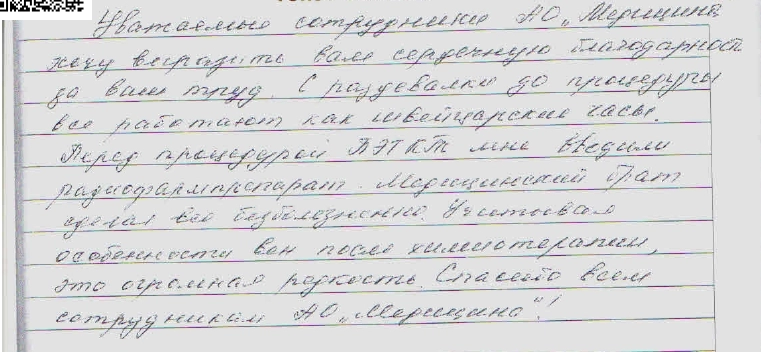 Уважаемые сотрудники АО „Медицина
хочу выразить вам сердечную благодарность
за ваш труд. С раздевалки до процедуры
все работают как швейцарские часы.
Перед процедурой ПЭТ КТ мне вводили
радиофармпрепарат. Медицинский брат
сделал всё безболезненно. Учитывая
особенности вен после химиотерапии,
это огромная редкость. Спасибо всем
сотрудникам АО „Медицина"!